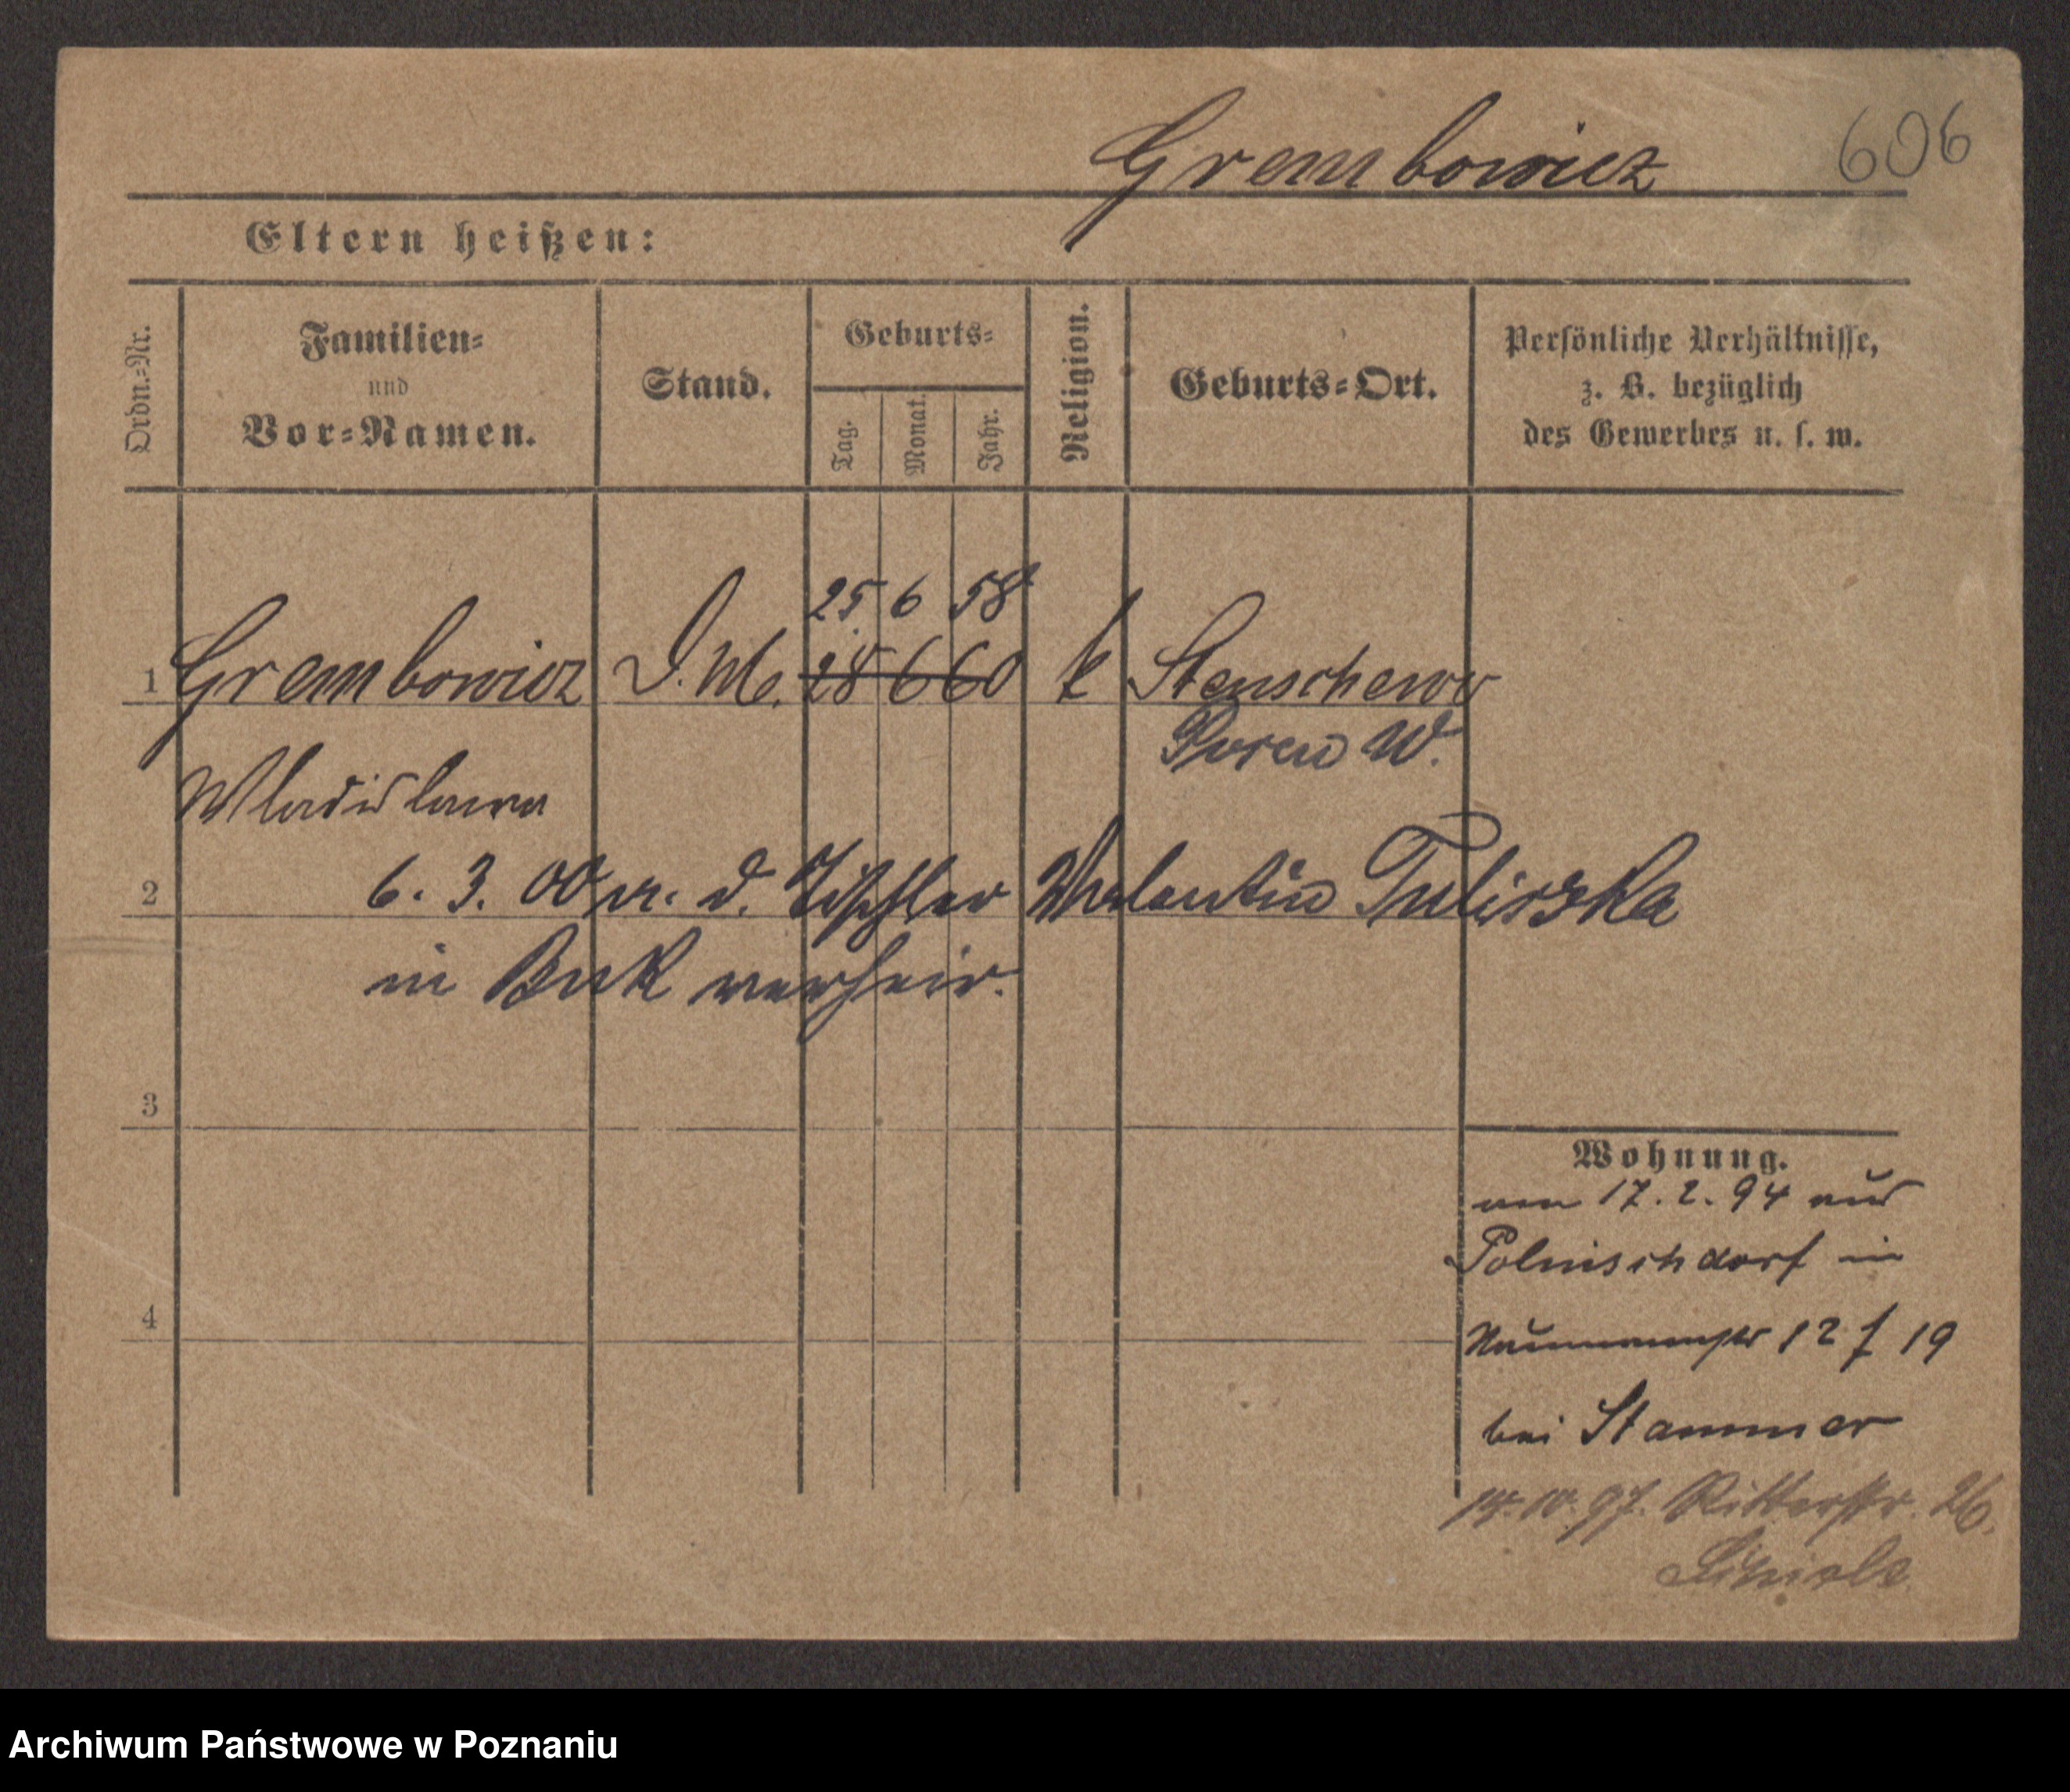 Grembowicz 606
Eltern heißen:
Ordn.-Nr.
Familien-
und
Vor-Namen.
Stand.
Geburts-
Tag.
Monat.
Jahr.
Religion.
Geburts-Ort.
Persönliche Verhältnisse,
z. B. bezüglich
des Gewerbes u. s. w.
25 6 58
1 Grembowicz D.M. 28 6 60 k Stenschewo
Posen W.
Wladislawa
2 6. 3. 00 m. d. Tischler Valentin Tuliszka
in Buk verheir.
3
Wohnung.
von 17. 2. 94 aus
Polnischdorf in
4
Naumannstr 12 f 19
bei Stammer
14. 10. 97. Ritterstr. 26.
Archiwum Państwowe w Poznaniu